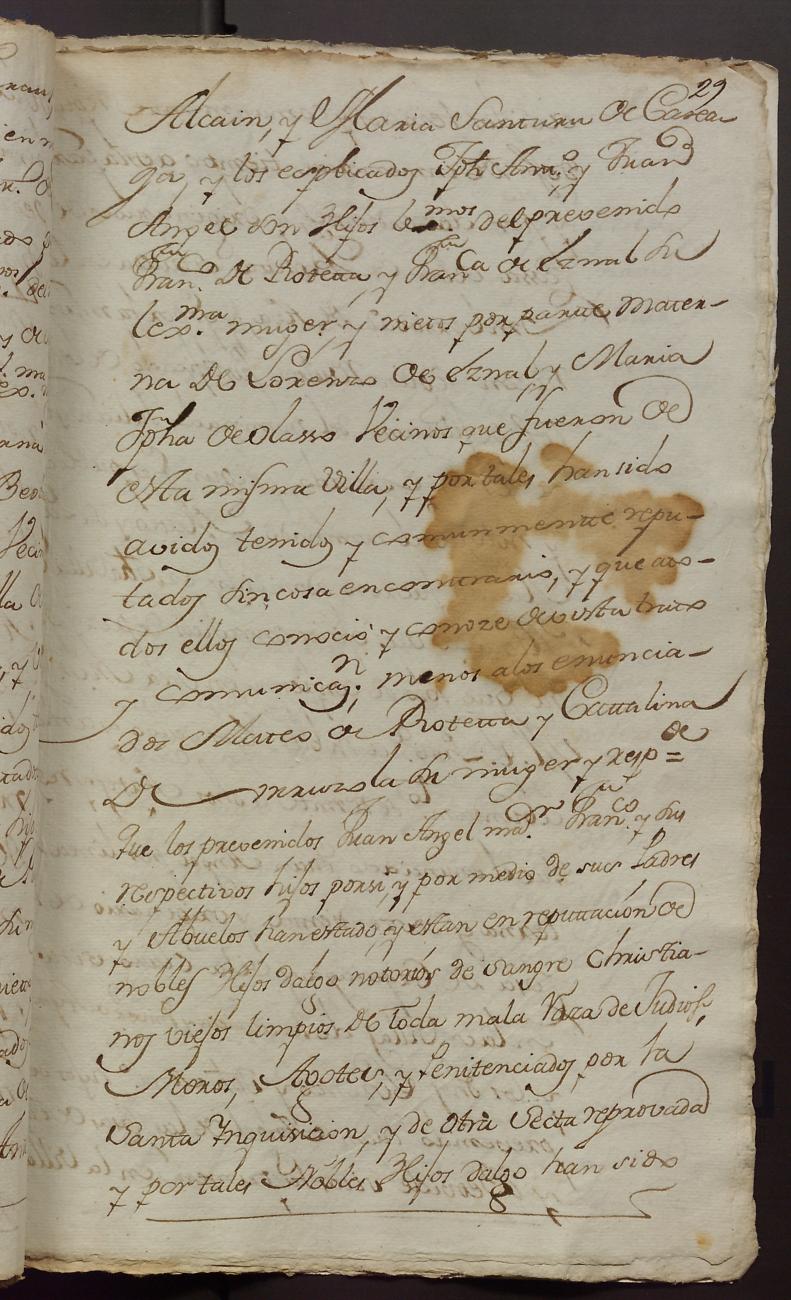 29
Alcain, y Maria Santuru de Carea
ga, y los esplicados Jph Anto. y Juan
Angel son Hijos lexmos del prevenido
Franco. de Rotetta y Franca de Eznal su
lexma. muger, y nietos por partte mater-
na de Lorenzo de Eznal y Maria
Jpha de Olasso Vecinos que fueron de
esta misma Villa, y por tales han sido
avidos tenidos y comunmente repu-
tados sin cosa en contrario, y que a to-
dos ellos conocio y conoze de vista trato
y comunican. menos a los enuncia-
dos Mateo de Rotetta y Cattalina
de su muger y resp. de =
Que los prevenidos Juan Angel mr. Franco. y sus
respectivos hijos por si, y por medio de sus Padres
y Abuelos han estado, y estan en reputtación de
nobles Hijos dalgo notorios de sangre Christia-
nos viejos limpios de toda mala Raza de Judios,
Moros, Agotes, y Penitenciados por la
Santa Inquisicion, y de otra Secta reprovada
y por tales Nobles Hijos dalgo han sido